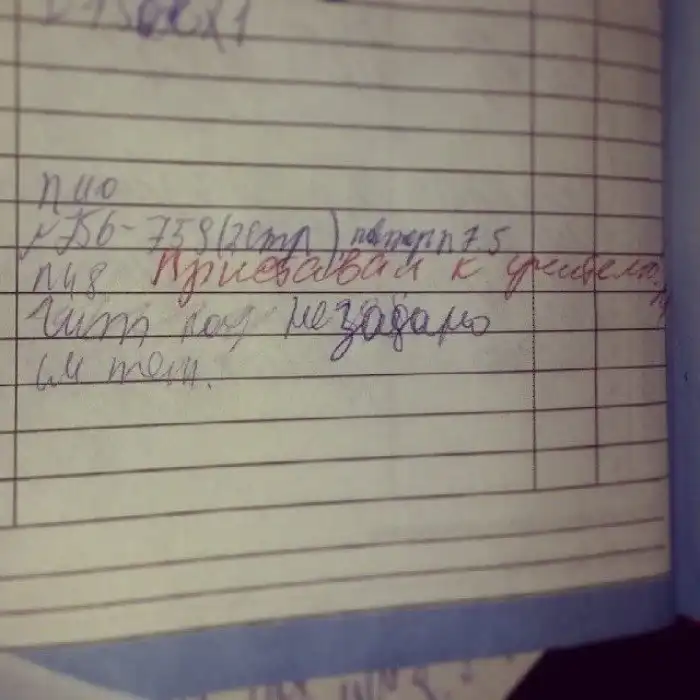 п 40
№ 756-759 (2 стр) повтор п 7.5
п 48 Приставал к учителю
Чит незадано
см тет.